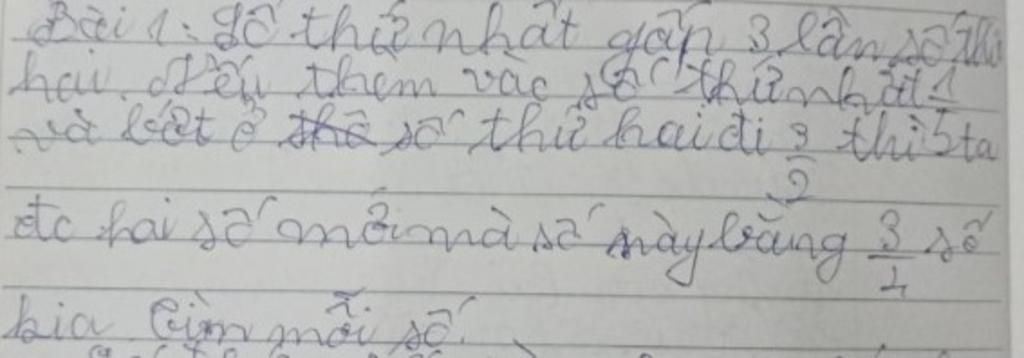 Bài 1: Số thứ nhất gấp 3 lần số thứ
hai. Nếu thêm vào số thứ nhất 1/5
và bớt ở số thứ hai đi 3/2 thì ta
đc hai số mới mà số này bằng 3/4 số
kia tìm mỗi số.